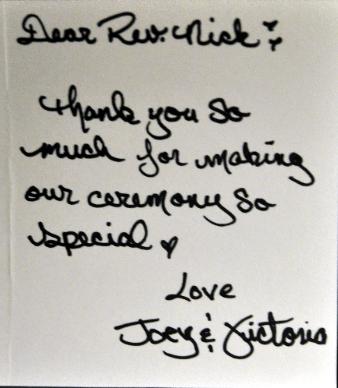 Dear Rev. Nick
Thank you so
much for making
our ceremony so
special ♥
Love
Joey & Victoria